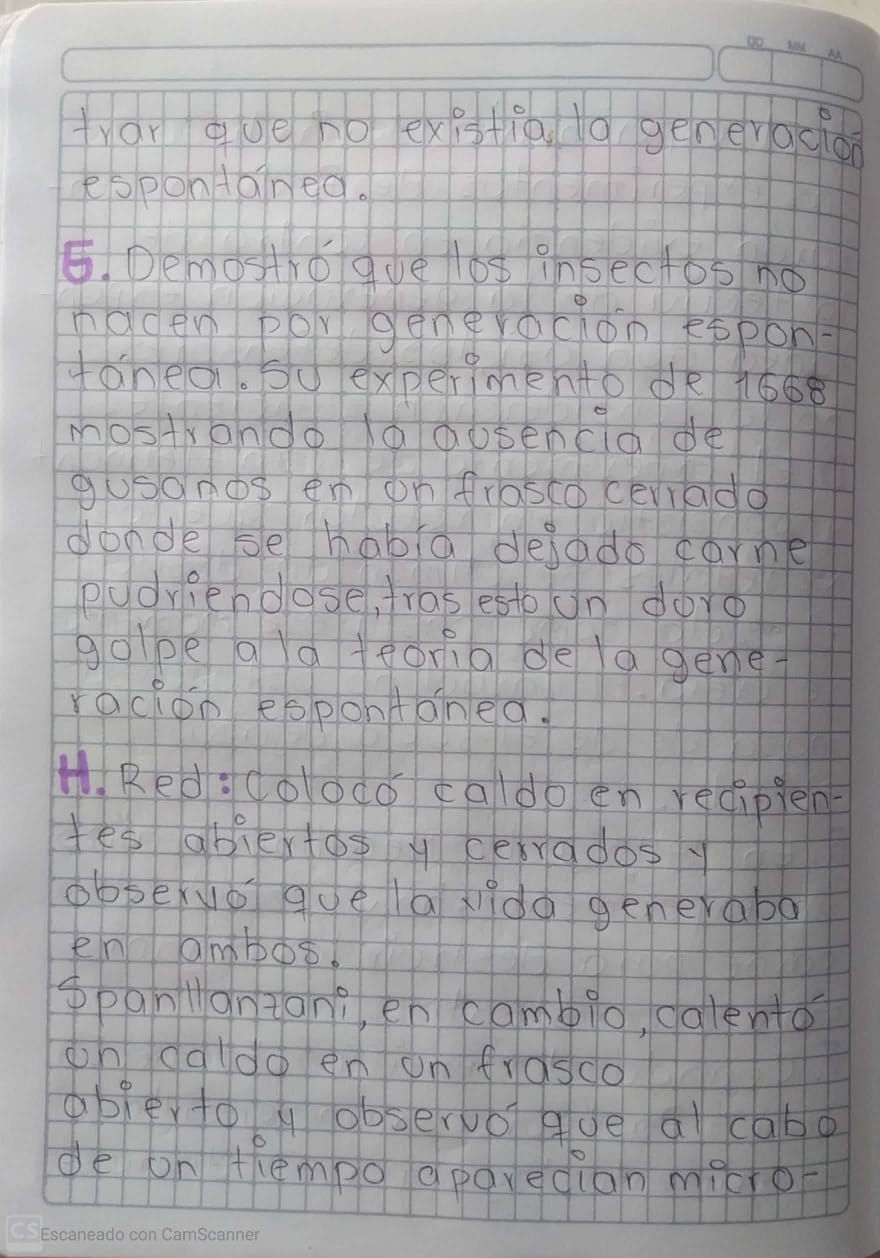 DD MM AA
trar que no existia la generación
espontánea.
G. Demostró que los insectos no
nacen por generación espon-
tánea. Su experimento de 1668
mostrando la ausencia de
gusanos en un frasco cerrado
donde se había dejado carne
pudriendose, tras esto un duro
golpe a la teoría de la gene-
ración espontánea.
H. Red: Colocó caldo en recipien-
tes abiertos y cerrados y
observó que la vida generaba
en ambos.
Spanllanzani, en cambio, calentó
un caldo en un frasco
abierto y observó que al cabo
de un tiempo aparecian micro-
CS Escaneado con CamScanner